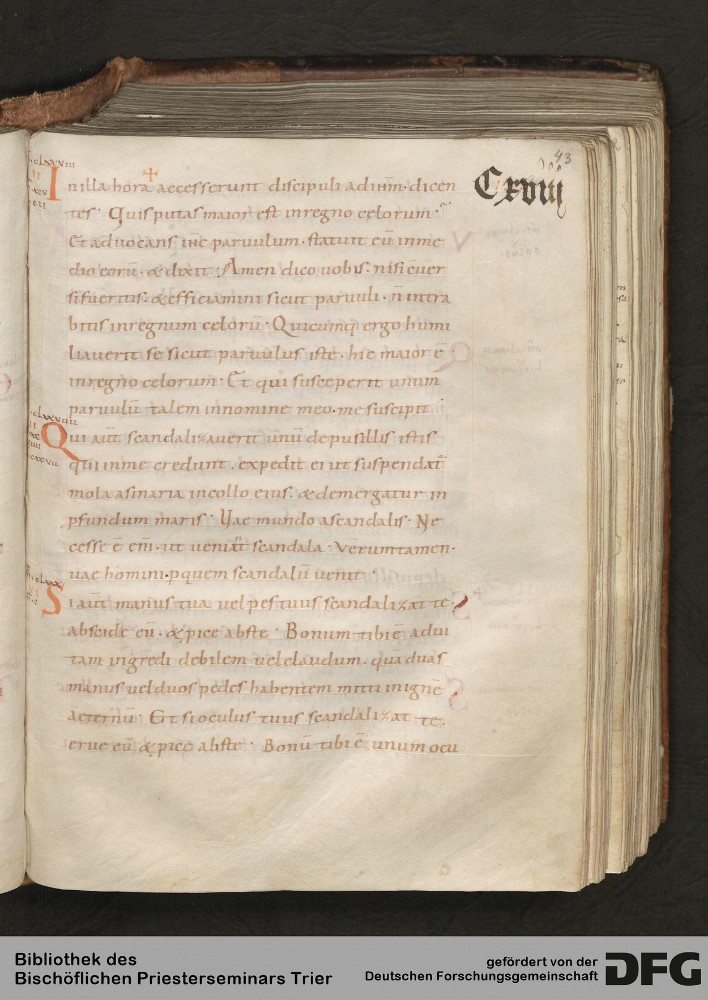 43
Cxviij
In illa hora accesserunt discipuli ad ihm̄. dicen
tes. Quis putas maior est in regno celorum.
Et aduocans ihc̄ paruulum. statuit eū in me
dio eorū. & dixit. Amen dico uobis. nisi euer
si fueritis. & efficiamini sicut paruuli. n̄ intra
bitis in regnum celorū. Quicumq; ergo humi
liauerit se sicut paruulus iste. hic maior ē
in regno celorum. Et qui susceperit unum
paruulū talem in nomine meo. me suscipit
Qui aut̄ scandalizauerit unū de pusillis istis
qui in me credunt. expedit ei ut suspendat̄
mola asinaria in collo eius. & demergatur in
pfundum maris. Uae mundo a scandalis. Ne
cesse ē eni̅. ut ueniat̄ scandala. Verumtamen.
uae homini. p quem scandalū uenit.
Si aut̄ manus tua uel pes tuus scandalizat te.
abscide eū. & pice abs te. Bonum tibi ē ad ui
tam ingredi debilem uel claudum. quā duas
manus uel duos pedes habentem mitti in ignē
aeternū. Et si oculus tuus scandalizat te.
erue eū & pice abs te. Bonū tibi ē unum ocu
Bibliothek des
Bischöflichen Priesterseminars Trier
gefördert von der
Deutschen Forschungsgemeinschaft
DFG